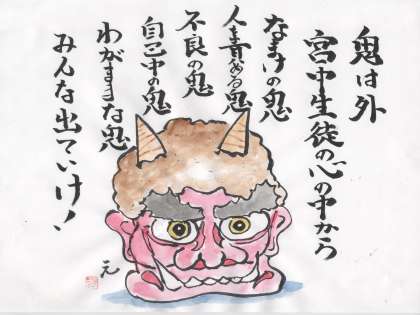 鬼は外
宮中生徒の心の中から
なまけの鬼
人を責める鬼
不良の鬼
自己中の鬼
わがままな鬼
みんな出ていけ!
元